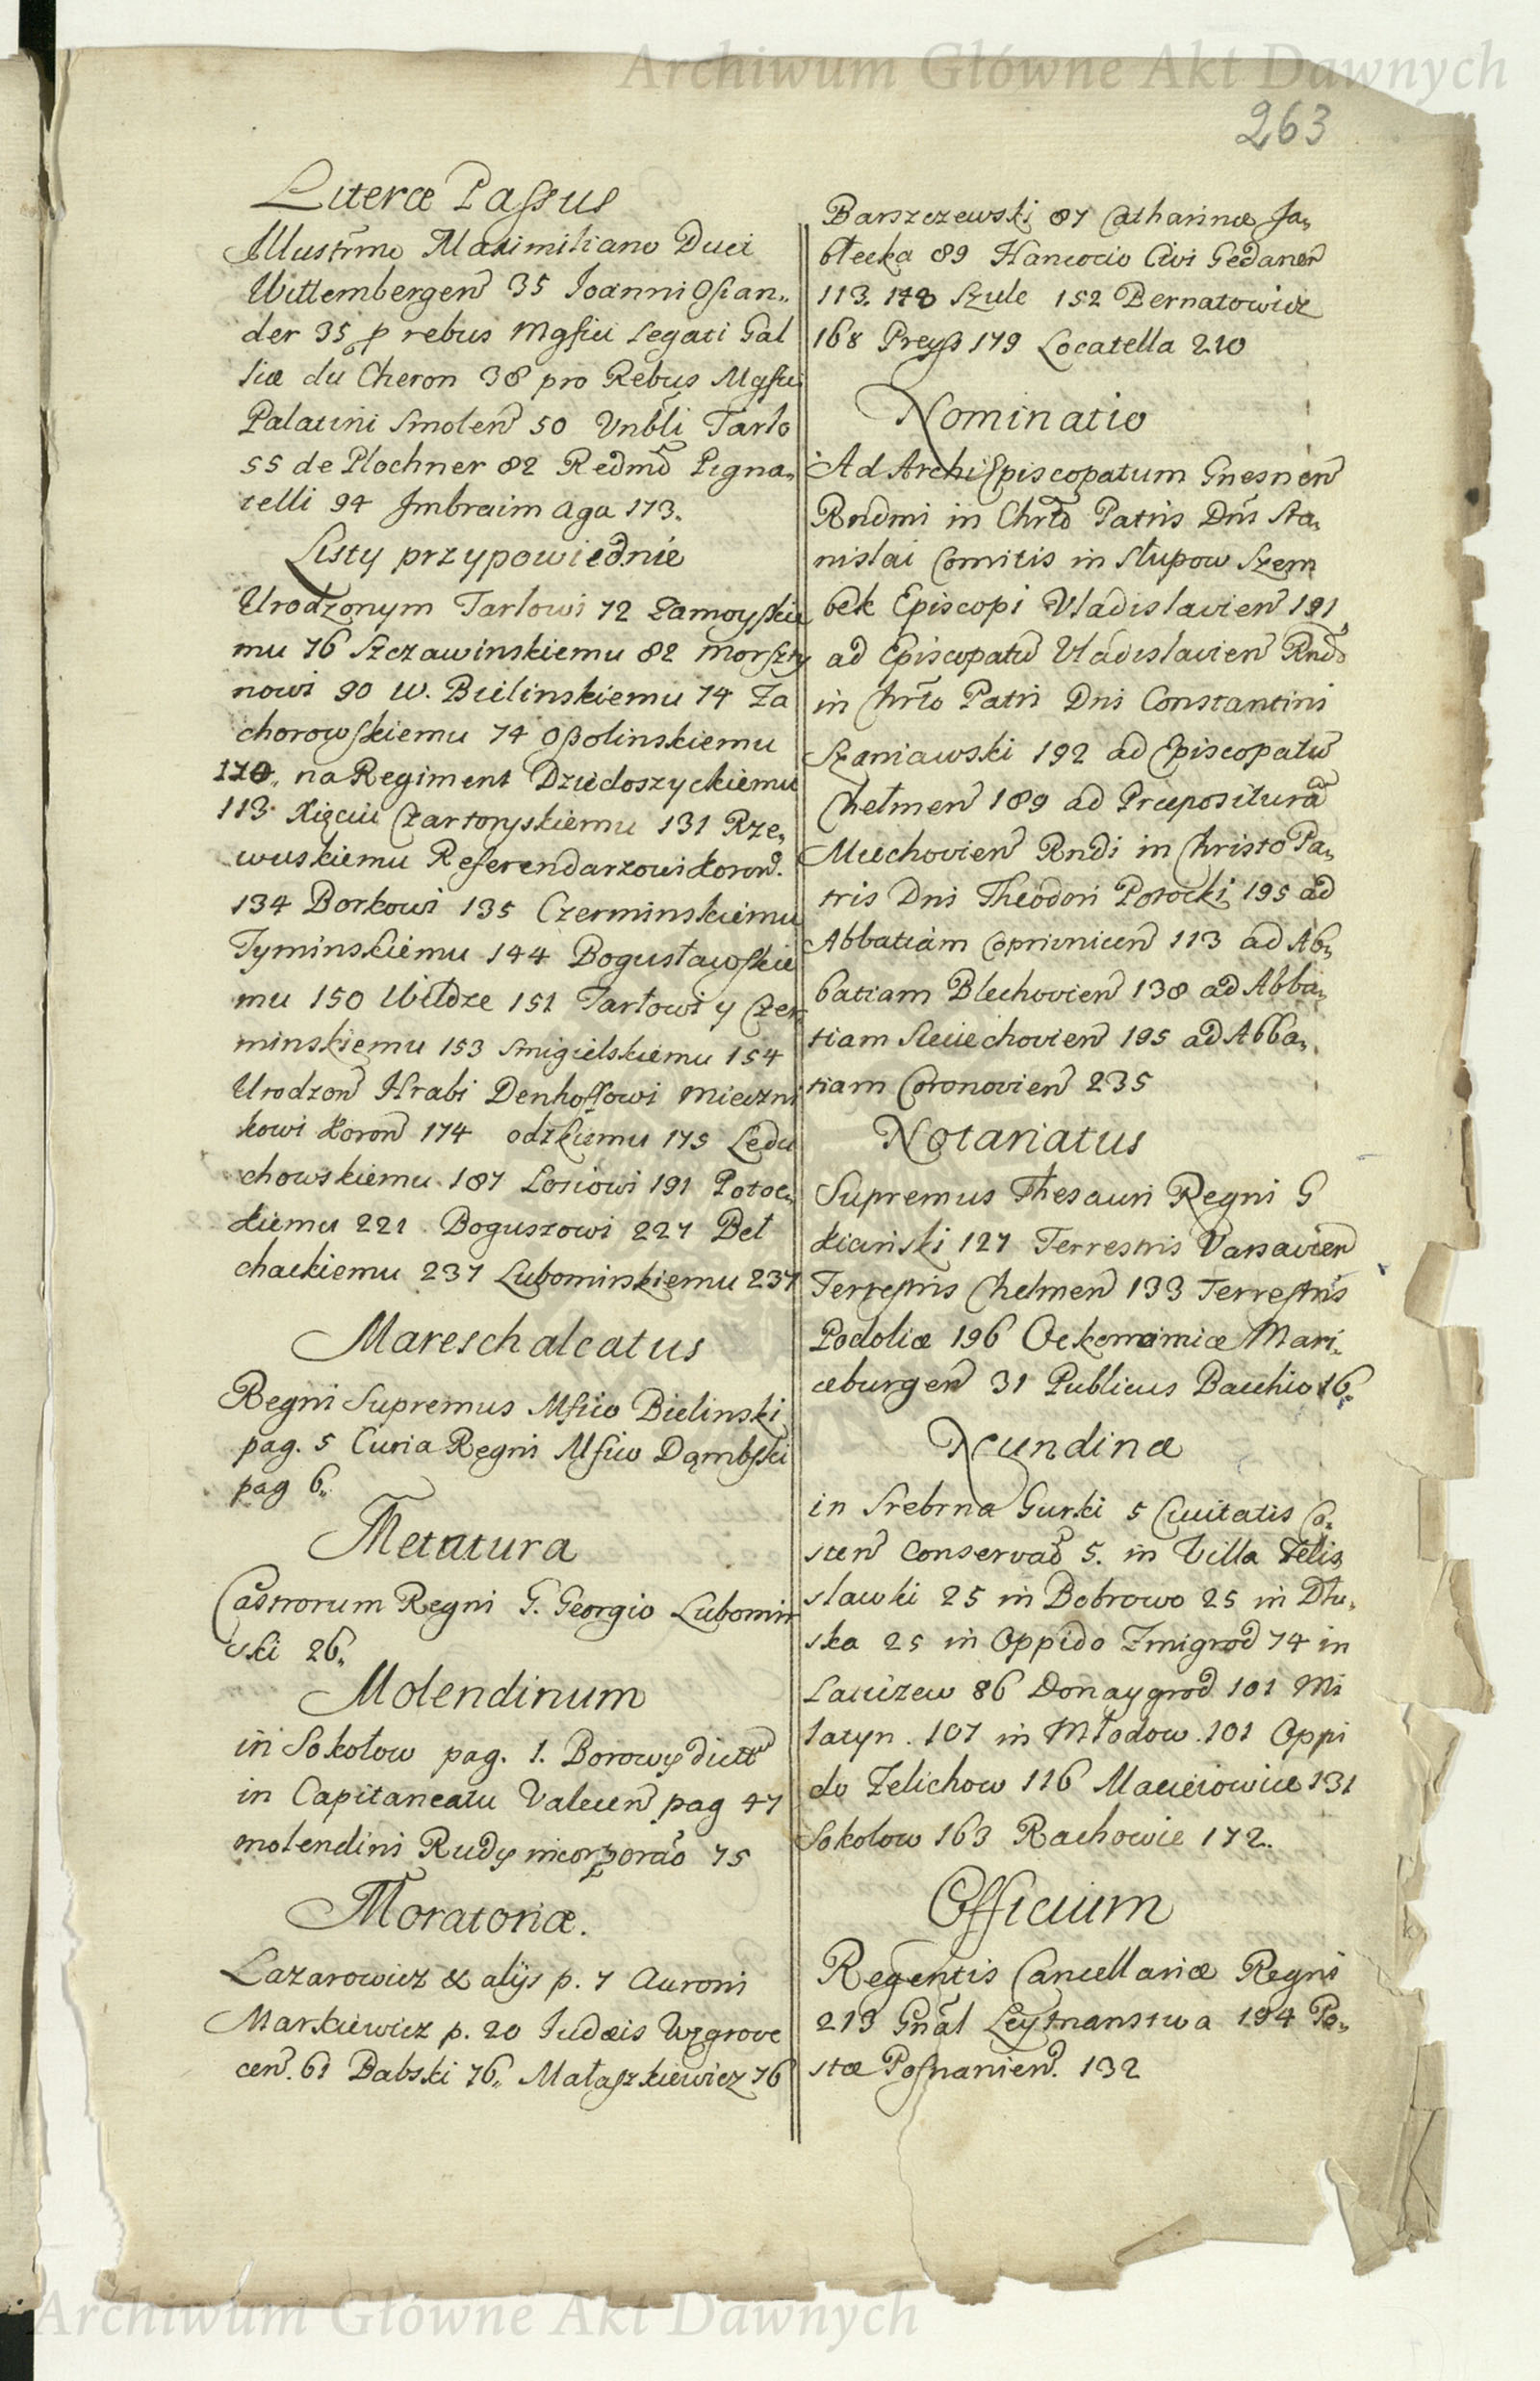 Archiwum Główne Akt Dawnych
263
Literæ Passus
Illustrmo Maximiliano Duci
Wittembergen 35 Joanni Osian„
der 35 p rebus Mgfici Legati Gal
liæ du Cheron 38 pro Rebus Mgfici
Palatini Smolen 50 Vnbli Tarlo
55 de Plochner 82 Redmo Pigna„
telli 94 Imbraim Aga 173.
Listy przypowiednie
Urodzonym Tarlowi 72 Zamoyskie
mu 76 Szczawinskiemu 82 Morszty
nowi 90 W. Bielinskiemu 74 Za
chorowskiemu 74 Oßolinskiemu
170„ na Regiment Dziedoszyckiemu
113. Xięciu Czartoryskiemu 131 Rze„
wuskiemu Referendarzowi Koron.
134 Borkowi 135 Czerminskiemu
Tyminskiemu 144 Bogusławskie
mu 150 Wildze 151 Tarłowi y Czer
minskiemu 153 Smigielskiemu 154
Urodzon Hrabi Denhoffowi Mieczni
kowi Koron 174 odzkiemu 175 Ledu
chowskiemu 187 Łosiowi 191 Potoc„
kiemu 221 Boguszowi 227 Beł
chackiemu 237 Lubomirskiemu 237
Mareschalcatus
Regni Supremus Mfico Bielinski
pag. 5 Curia Regni Mfico Dąmbski
pag 6„
Metatura
Castrorum Regni G. Georgio Lubomir
ski 26„
Molendinum
in Sokołow pag. 1. Borowy dictt
in Capitaneatu Valecen pag 47
molendini Rudy incorporao 75
Moratoriæ.
Lazarowicz & alijs p. 7 Auroni
Markiewicz p. 20 Judæis Wzgrove
cen. 61 Babski 76„ Małaszkiewicz 76
Barszczewski 87 Catharinæ Ja„
błecka 89 Hancocio Civi Gedanen
113. 178 Szulc 152 Bernatowicz
168 Preyß 179 Locatella 210
Nominatio
Ad ArchiEpiscopatum Gnesnen
Rndmi in Chrto Patris Dni Sta„
nislai Comitis in Słupow Szem
bek Episcopi Vladislavien 191
ad Episcopatu Vladislavien Rndo
in Chrto Patri Dni Constantini
Szaniawski 192 ad Episcopatu
Chełmen 189 ad Præpositura
Miechovien Rndi in Christo Pa„
tris Dni Theodori Potocki 195 ad
Abbatiam Coprivnicen 113 ad Ab„
batiam Blechovien 138 ad Abba„
tiam Sieciechovien 195 ad Abba„
tiam Coronovien 235
Notariatus
Supremus Thesauri Regni G
Kicinski 127 Terrestris Varsavien
Terrestris Chelmen 133 Terrestris
Podoliæ 196 Oekonomiæ Mari„
æburgen 31 Publicus Bacchio 16„
Nundinæ
in Srebrna Gurki 5 Civitatis Co„
sten Conservao 5. in Villa Felis
slawki 25 in Bobrowo 25 in Dłu„
ska 25 in Oppido Zmigrod 74 in
Latiizew 86 Donaygrod 101 Mi
latyn . 107 in Młodow . 101 Oppi
do Zelichow 116 Macieiowice 131
Sokolow 163 Rachowie 172.
Officium
Regentis Cancellariæ Regni
213 Gnal Leytmanstwa 194 Po„
stæ Posnanien. 132
Archiwum Główne Akt Dawnych